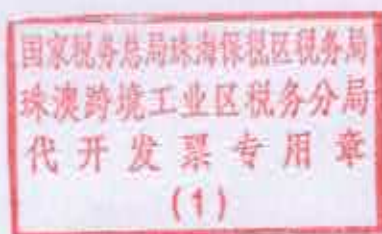 国家税务总局珠海保税区税务局
珠澳跨境工业区税务分局
代开发票专用章
(1)